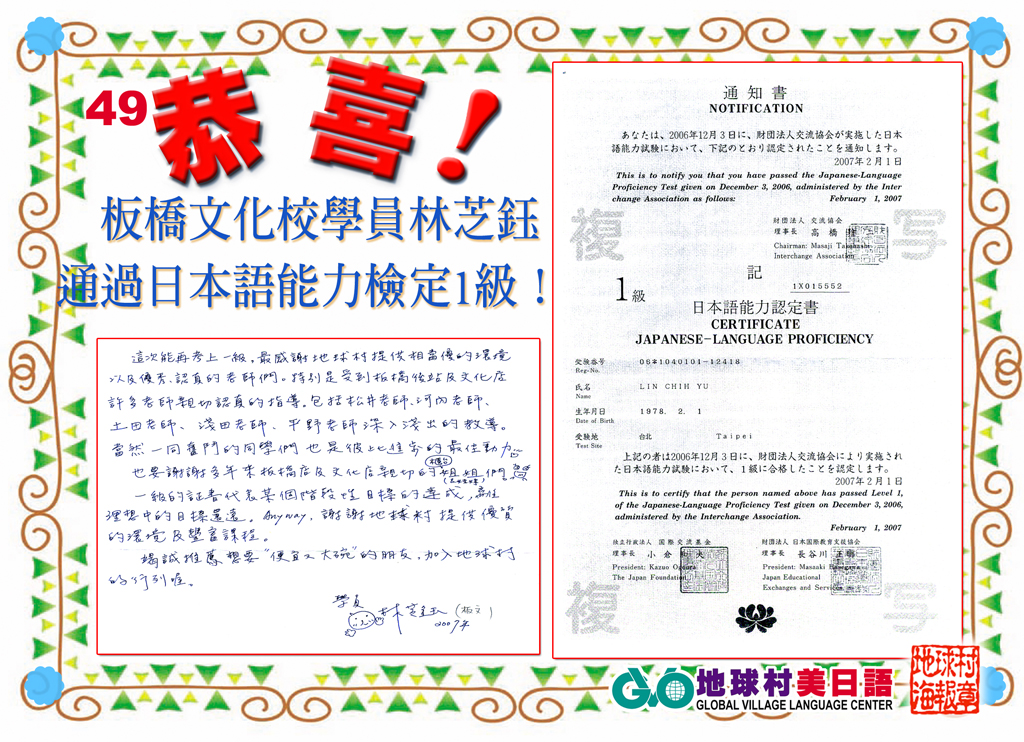 49
恭喜!
板橋文化校學員林芝鈺
通過日本語能力檢定1級!
這次能再考上一級,最感謝地球村提供相當優的環境
以及優秀、認真的老師們。特別是受到板橋後站及文化店
許多老師親切認真的指導。包括松井老師、河內老師、
土田老師、淺田老師、平野老師深入淺出的教導。
當然一同奮鬥的同學們也是彼此進步的最佳動力
也要謝謝多年來板橋店及文化店親切的櫃台姐姐們
一級的証書代表某個階段性目標的達成,離
理想中的目標還遠。Anyway,謝謝地球村提供優質
的環境及豐富課程。
竭誠推薦想要"便宜又大碗"的朋友,加入地球村
的行列喔。
學員
林芝鈺(板文)
2007年
通知書
NOTIFICATION
あなたは、2006年12月3日に、財団法人交流協会が実施した日本
語能力試験において、下記のとおり認定されたことを通知します。
2007年2月1日
This is to notify you that you have passed the Japanese-Language
Proficiency Test given on December 3, 2006, administered by the Inter
change Association as follows: February 1, 2007
財団法人 交流協会
理事長 高橋
Chairman: Masaji Takahashi
Interchange Association
複写
記
1X015552
1級
日本語能力認定書
CERTIFICATE
JAPANESE-LANGUAGE PROFICIENCY
受験番号 06*1040101-12418
Reg-No.
氏名 LIN CHIH YU
Name
生年月日 1978. 2. 1
Date of Birth
受験地 台北 Taipei
Test Site
上記の者は2006年12月3日に、財団法人交流協会により実施され
た日本語能力試験において、1級に合格したことを認定します。
2007年2月1日
This is to certify that the person named above has passed Level 1,
of the Japanese-Language Proficiency Test given on December 3, 2006,
administered by the Interchange Association.
February 1, 2007
独立行政法人 国際交流基金 財団法人 日本国際教育支援協会
理事長 小倉和夫 理事長 長谷川正明
President: Kazuo Ogoura President: Masaaki
The Japan Foundation Japan Educational
Exchanges and Services
複写
GVO 地球村美日語
GLOBAL VILLAGE LANGUAGE CENTER
地球村
海報章